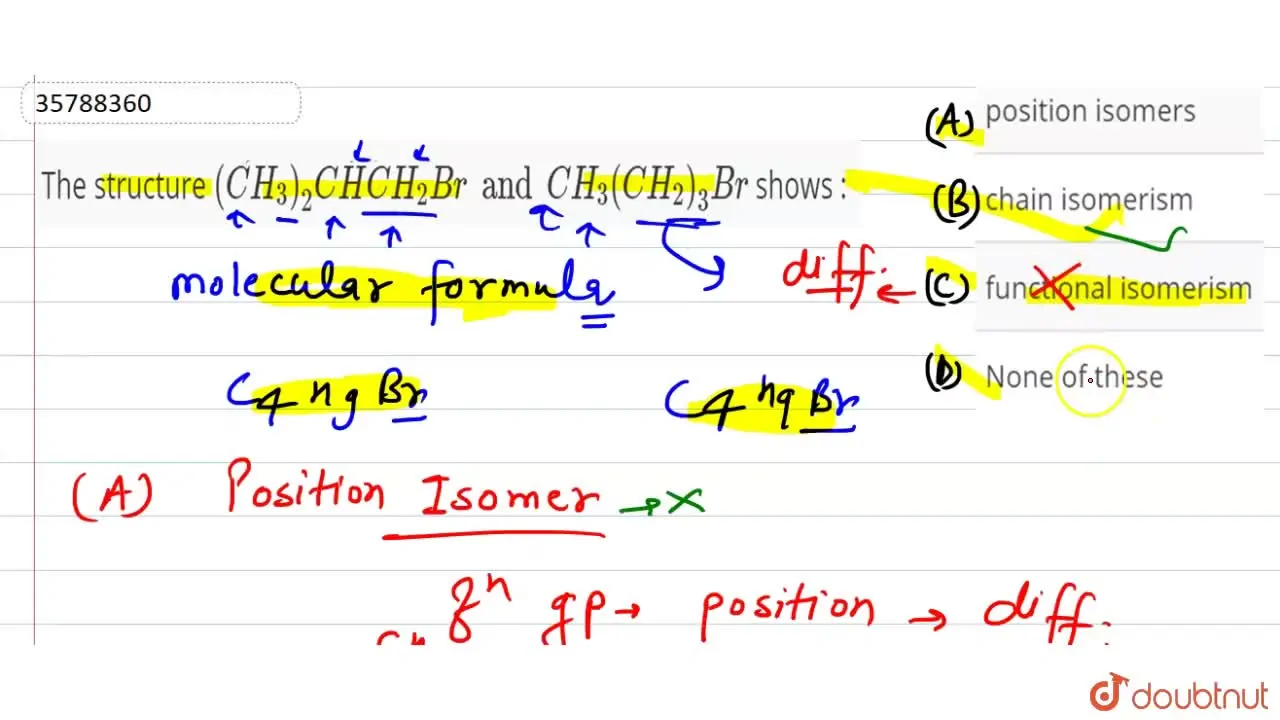 35788360
The structure (CH₃)₂CHCH₂Br and CH₃(CH₂)₃Br shows :
(A) position isomers
(B) chain isomerism
(C) functional isomerism
(D) None of these
molecular formula
diff.
C4H9Br C4H9Br
(A) Position Isomer → X
gp → position → diff.
doubtnut